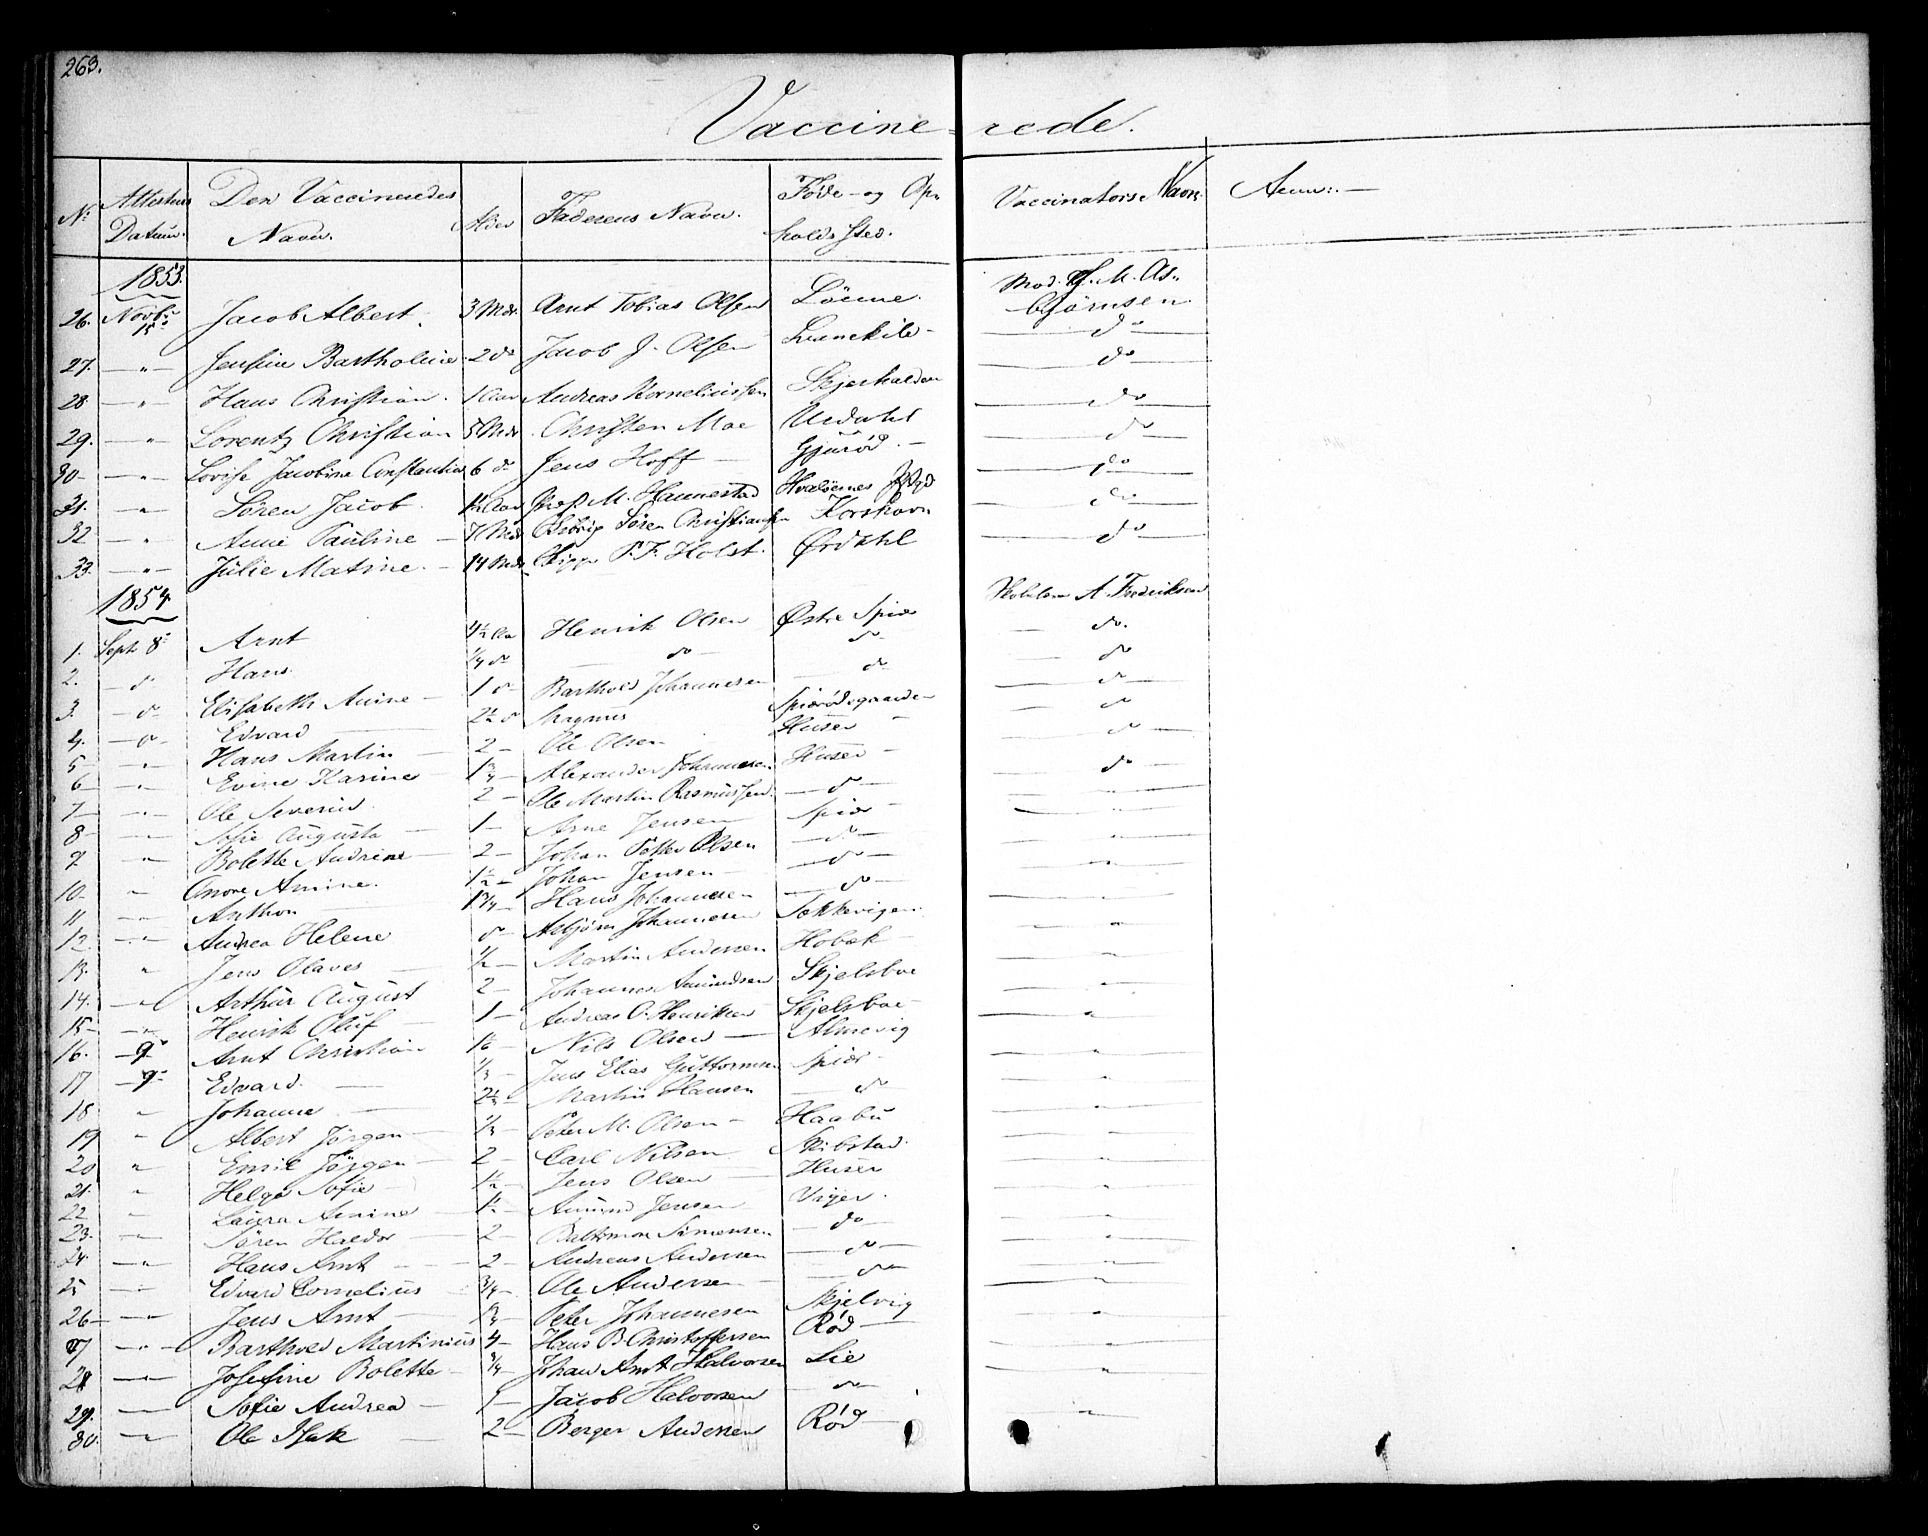 263.
Vaccine-rede.
No Attestens Datum. Den Vaccineredes Navn. Alder Faderens Navn. Føde- og Op- holds Sted. Vaccinators Navn. Anm:
1853.
26. Novbr 15 Jacob Albert. 3 Mdr. Arnt Tobias Olsen Mod. M. As- bjørnsen
27. — " — Jensine Bartholine 2 do Jacob J. Olsen — do —
28 — " — Hans Christian. 1 Aar Andreas Korneliussen Skjærhalden — do —
29. — " Lorentz Christian 5 Mdr. Christen Moe Urdahl — do —
30 — " Lovise Jacobine Constantia 6 do Jens Hoff — Gjurød. — do —
31. — " Søren Jacob. 1½ Aar M. Hannestad Hvaløernes — do —
32 — " Anne Pauline — 7 Mdr Søren Christiansen Korshavn — do —
33. — " — Julie Matine. — 14 Mdr. P. F. Holst. Ørdahl — do —
1854.
A. Fredriksen
1. Sept. 8 Arnt 4½ Aar Henrik Olsen Østre Spiær — do.
2. — do Hans ¼ do — do — do — do
3. — do Elisabeth Anine — 1 do Barthold Johannesen do — do
4. — do — Edvard 2½ do Magnus Spiærødsgaarden — do
5 — " Hans Martin 2 — Ole Olsen Huser — — do —
6 — " Evine Karine — 1¾ — Alexander Johannesen Huser — — do —
7 — " Ole Severin 2 — Ole Martin Rasmussen. — do — "
8 — " Sofie Augusta — 1 — Arne Jensen Spiær — "
9. " Bolette Andrine 2 — Johan Petter Olsen — do — "
10. " Amine. 1½ — Johan Jensen — do — "
11 — " Anthon 1¾ — Hans Johannesen — do — "
12 — " Andrea Helene do — Asbjørn Johannesen "
13. " Jens Olaves ½ — Martin Andersen Hobæk — "
14. — " Arthur August 2 — Johannes Amundsen Skjelsboe "
15 — " Henrik Oluf — 1 — Andreas O. Henriksen Skjelsboe — "
16. — 9 — Arnt Christian Nils Olsen — Almevig "
17 — 9 — Edvard. — ⅓ — Jens Elias Guttormsen Spiær — "
18 " Johanne — Martin Hansen — do "
19 " Albert Jørgen — ⅓ — Peter M. Olsen — Haabu "
20 " Emil Jørgen — 2 — Carl Nilsen Skibstad. "
21. " Helga Sofie — 1½ — Jens Olsen — Huser "
22 " Laura Amine — 1½ — Amund Jensen Viger. "
23. " Søren Haldor — 2 Baltzmon Simensen — do — "
24. — " Hans Arnt — 2 — Andreas Andersen — do — "
25 — " Edvard Cornelius ¾ — Ole Andersen — do — "
26 — " Jens Arnt — Peter Johannesen Skjelvig "
27 — " — Barthold Martinius 4 — Hans B. Christoffersen Rød — "
28 — " Josefine Bolette ¾ Johan Arnt Halvorsen Lie "
29. — " Sofie Andrea — 1 — Jacob Halvorsen — do —
30. — " Ole Isak — 2 — Berger Andersen Rød — "